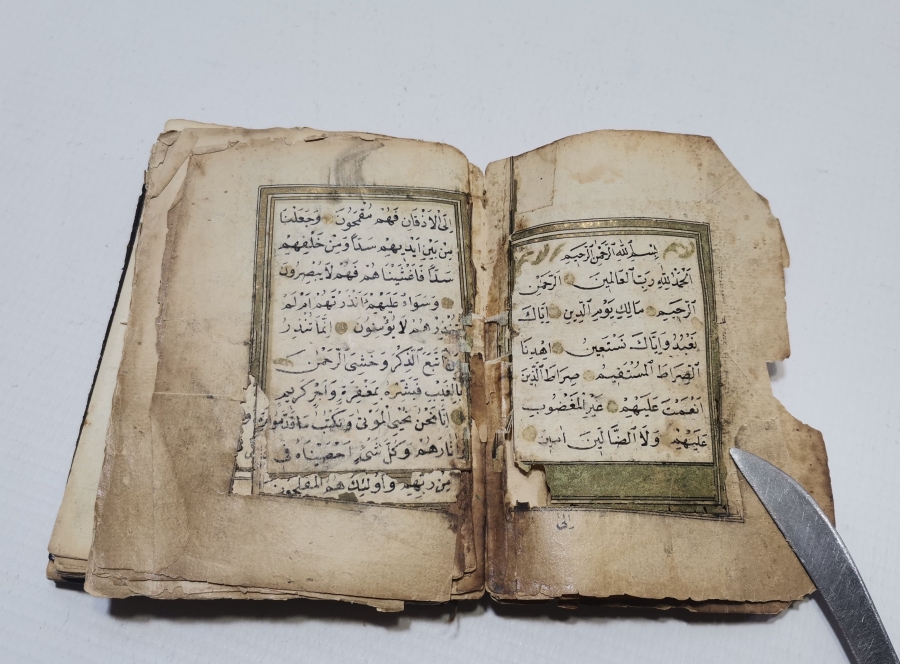 بِسْمِ اللهِ الرَّحْمٰنِ الرَّحِيمِ
اَلْحَمْدُ لِلّٰهِ رَبِّ الْعَالَمِينَ الرَّحْمٰنِ
الرَّحِيمِ مَالِكِ يَوْمِ الدِّينِ اِيَّاكَ
نَعْبُدُ وَاِيَّاكَ نَسْتَعِينُ اِهْدِنَا
الصِّرَاطَ الْمُسْتَقِيمَ صِرَاطَ الَّذِينَ
اَنْعَمْتَ عَلَيْهِمْ غَيْرِ الْمَغْضُوبِ
عَلَيْهِمْ وَلَا الضَّالِّينَ اٰمِينَ
الى
اِلَى الْاَذْقَانِ فَهُمْ مُقْمَحُونَ وَجَعَلْنَا
مِنْ بَيْنِ اَيْدِيهِمْ سَدًّا وَمِنْ خَلْفِهِمْ
سَدًّا فَاَغْشَيْنَاهُمْ فَهُمْ لَا يُبْصِرُونَ
وَسَوَاءٌ عَلَيْهِمْ ءَاَنْذَرْتَهُمْ اَمْ لَمْ
تُنْذِرْهُمْ لَا يُؤْمِنُونَ اِنَّمَا تُنْذِرُ
اتَّبَعَ الذِّكْرَ وَخَشِيَ الرَّحْمٰنَ
بِالْغَيْبِ فَبَشِّرْهُ بِمَغْفِرَةٍ وَاَجْرٍ كَرِيمٍ
اِنَّا نَحْنُ نُحْيِي الْمَوْتٰى وَنَكْتُبُ مَا قَدَّمُوا
وَكُلَّ شَيْءٍ اَحْصَيْنَاهُ فِي
مِنْ رَبِّهِمْ وَاُولٰئِكَ هُمُ الْمُفْلِحُونَ